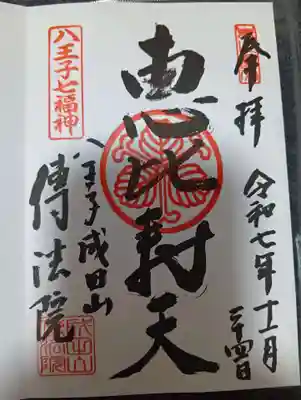 奉拝
令和七年十二月
二十四日
惠比寿天
八王子七福神
八王子成田山
傳法院